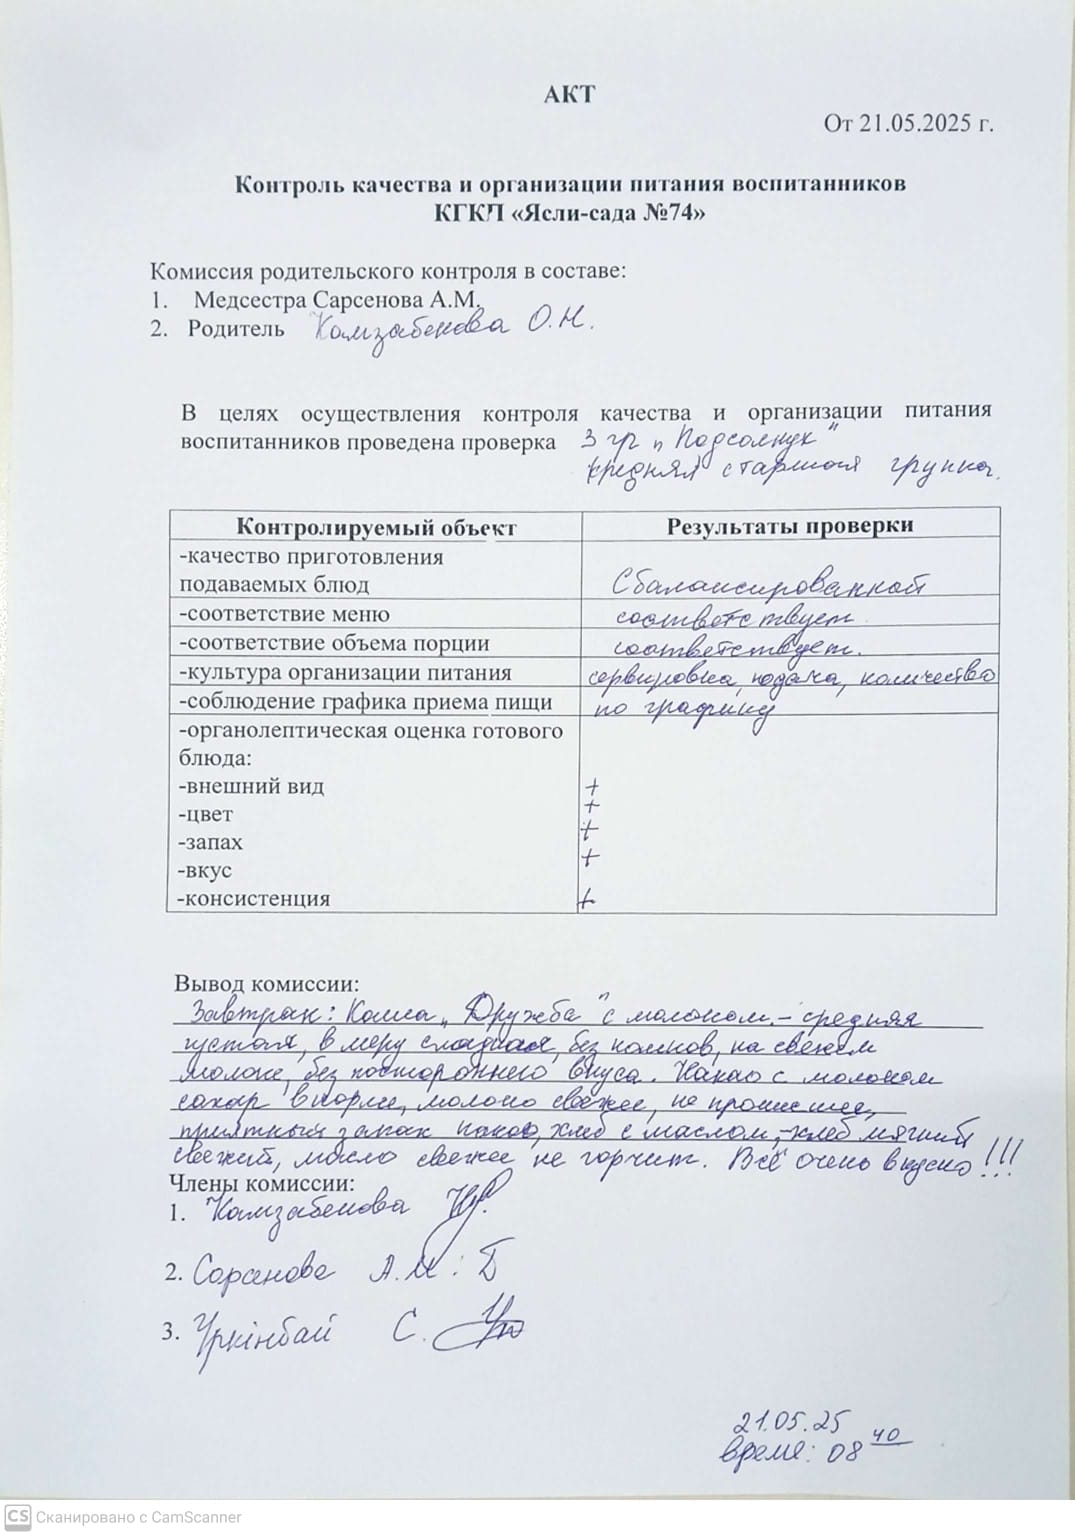 АКТ
От 21.05.2025 г.
Контроль качества и организации питания воспитанников
КГКП «Ясли-сада №74»
Комиссия родительского контроля в составе:
1. Медсестра Сарсенова А.М.
2. Родитель Камзабекова О.Н.
В целях осуществления контроля качества и организации питания
воспитанников проведена проверка 3 гр „Подсолнух"
средняя старшая группа.
Контролируемый объект Результаты проверки
-качество приготовления
подаваемых блюд Сбалансированной
-соответствие меню соответствует
-соответствие объема порции соответствует.
-культура организации питания сервировка, подача, количество
-соблюдение графика приема пищи по графику
-органолептическая оценка готового
блюда:
-внешний вид +
-цвет +
-запах +
-вкус +
-консистенция +
Вывод комиссии:
Завтрак: Каша „Дружба" с молоком. - средняя
густая, в меру сладкая, без комков, на свежем
молоке, без постороннего вкуса. Какао с молоком
сахар в норме, молоко свежее, не прокисшее,
приятный запах какао, хлеб с маслом, - хлеб мягкий
свежий, масло свежее не горчит. Всё очень вкусно!!!
Члены комиссии:
1. Камзабекова
2. Сарсенова А.М.
3. Үркінбай С.
21.05.25
время: 08 40
CS Сканировано с CamScanner